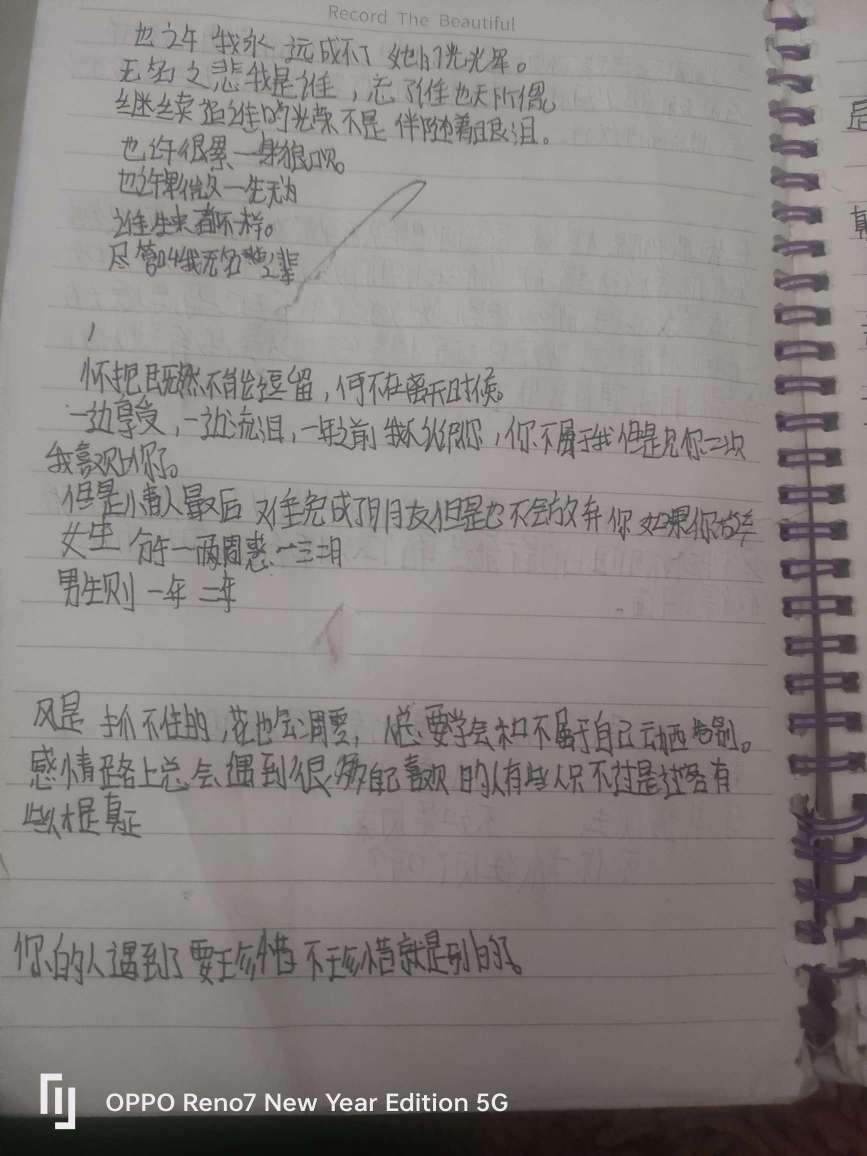 Record The Beautiful
也许我永远成不了她的光辉。
无名之悲我是谁,忘了谁也无所谓
继续追谁的光荣不是伴随着眼泪。
也许很累一身狼
也许 一生无为
谁生来都不一样。
尽管叫我无名 之辈
怀抱既然不能逗留,何不在离开时候。
一边享受,一边流泪,一年之前我不认识你,你不属于我但是见你二次
我喜欢上你了。
但是小情人最后 难免成了朋友但是也不会放弃你 如果你放弃
女生 一两周 一三二月
男生则 一年 二年
风是 抓不住的,花也会凋零,人总要学会和不属于自己 告别。
感情路上总会遇到很多自己喜欢的人有些人只不过是过客有
些人才是真正
你的人遇到了要珍惜 不珍惜就是别的了。
OPPO Reno7 New Year Edition 5G